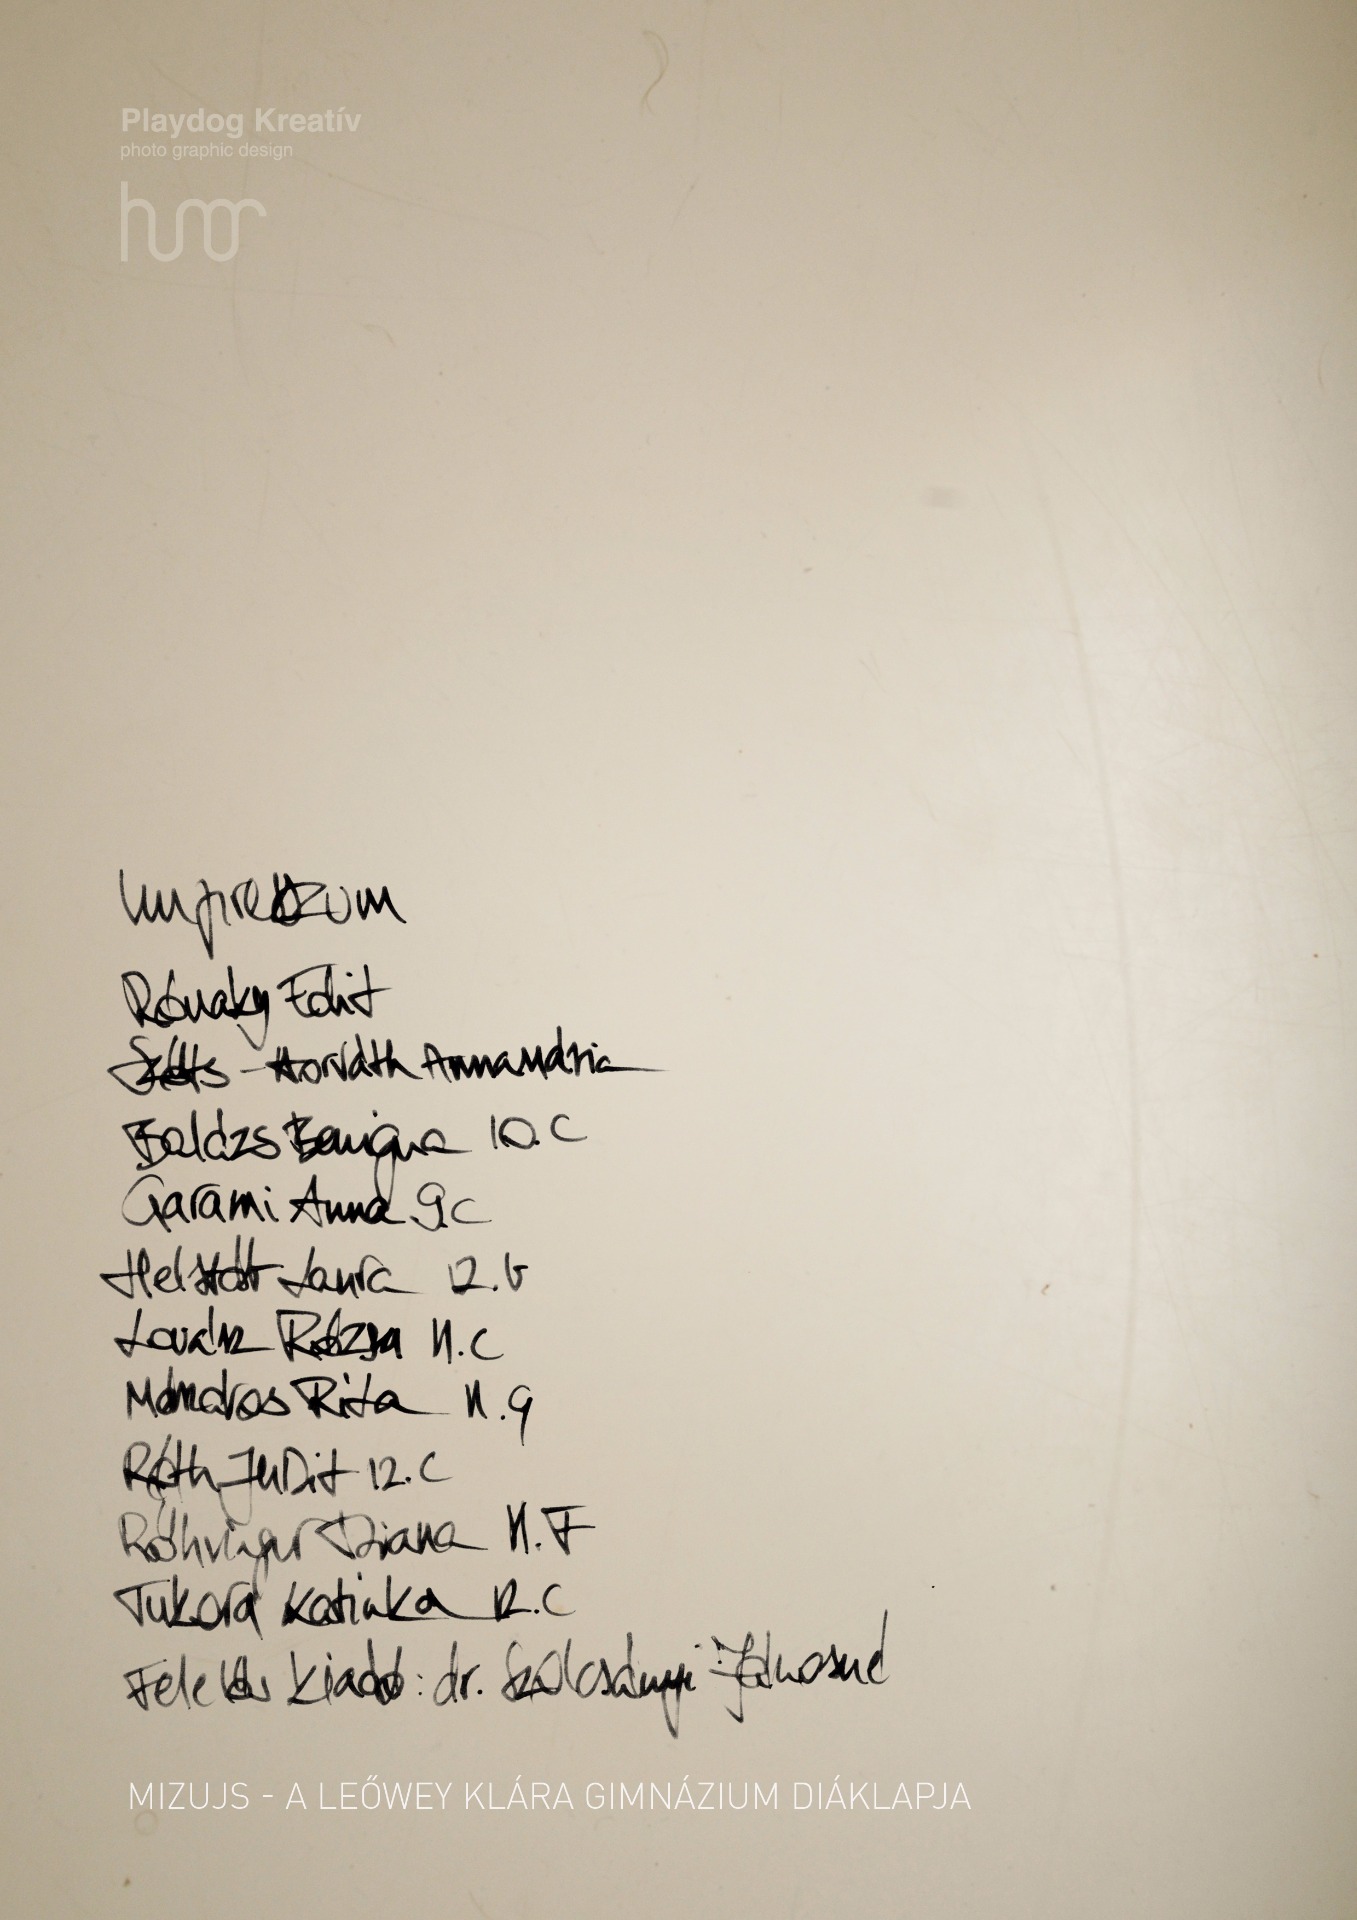 Playdog Kreatív
photo graphic design
Impresszum
Rónaky Edit
Szűts - Horváth Annamária
Balázs Benigna 10.C
Garami Anna 9.c
Laura 12.b
Lovász Rózsa 11.C
Mándoros Rita 11.g
Róth Judit 12.C
Diana 11.F
Tukora Katinka 12.C
Felelős kiadó: dr. Szolcsányi Jánosné
MIZUJS - A LEŐWEY KLÁRA GIMNÁZIUM DIÁKLAPJA